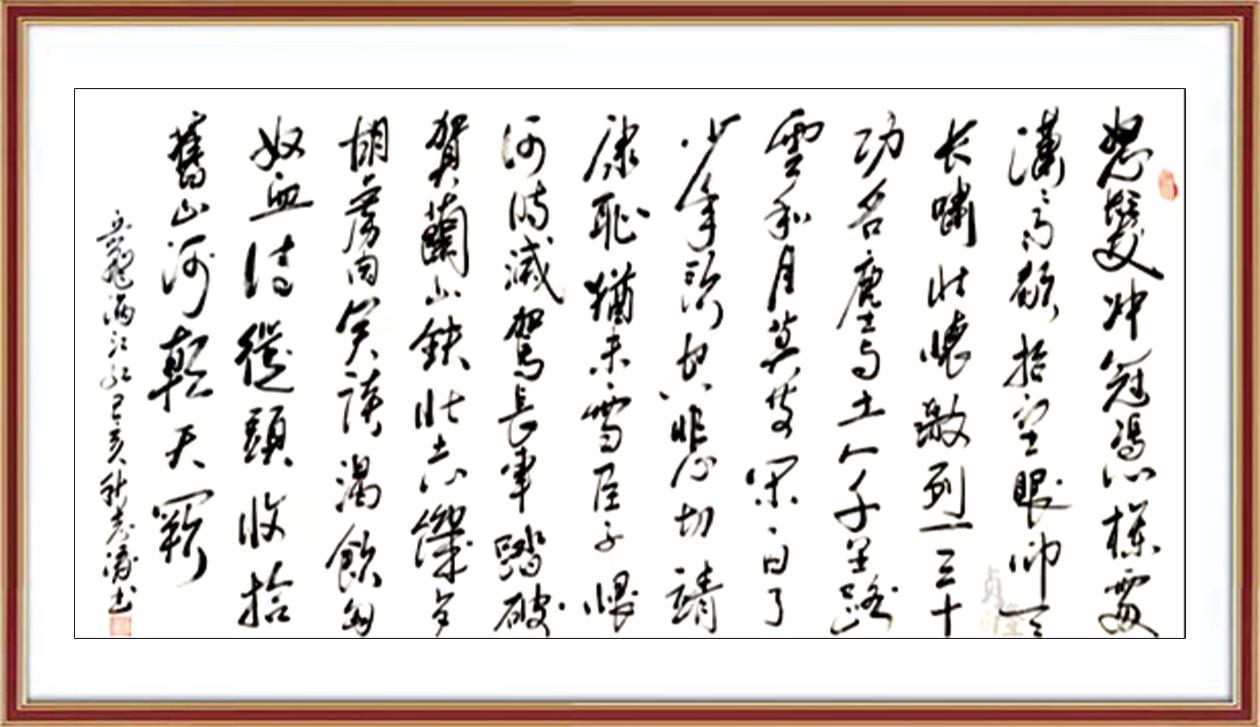 怒髮冲冠憑欄處
瀟々雨歇抬望眼仰天
长嘯壯懷激烈三十
功名塵与土八千里路
雲和月莫等閑白了
少年頭空悲切靖
康恥猶未雪臣子恨
何時滅駕長車踏破
賀蘭山缺壯志飢餐
胡虜肉笑談渴飲匈
奴血待從頭收拾
舊山河朝天闕
岳飛滿江紅己亥秋志濤书